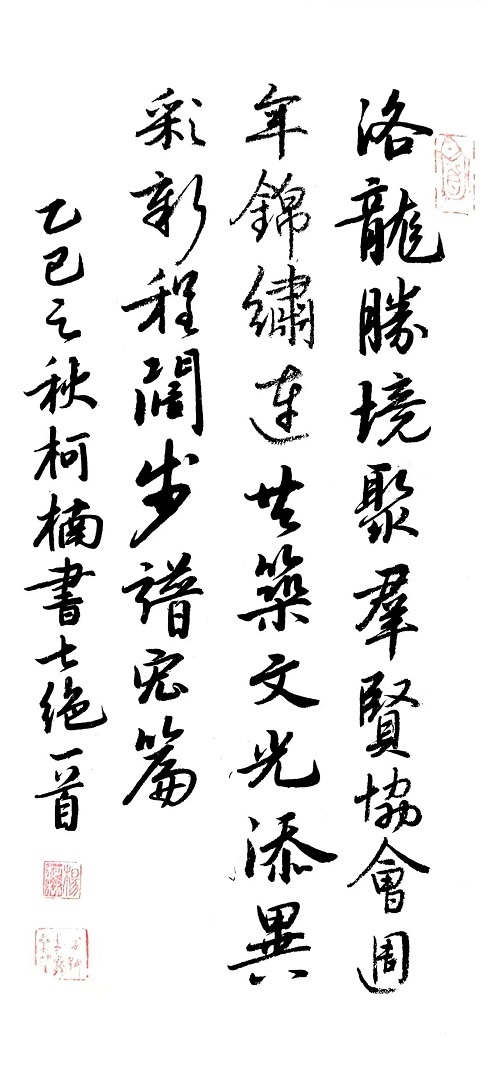 洛龍勝境聚羣賢協會週
年錦繡連共築文光添異
彩新程闊步譜宏篇
乙巳之秋柯楠書七绝一首